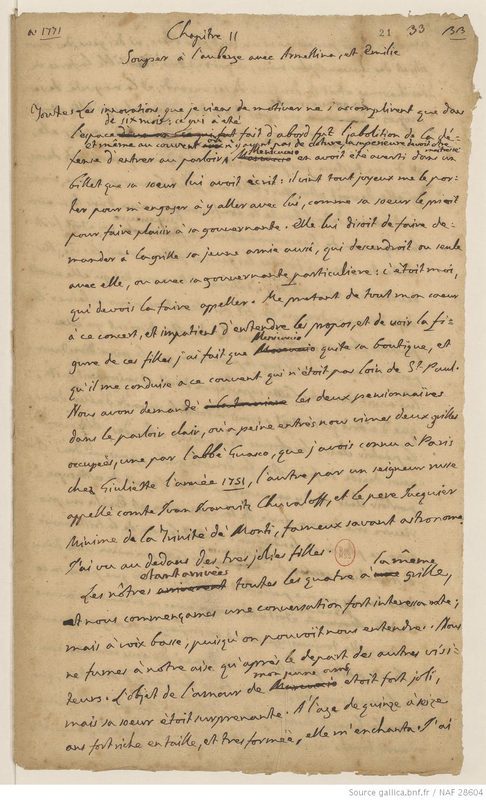 a: 1771 Chapitre II 21 33 133
Souper à l'auberge avec Armelline, et Emilie
Toutes les innovations que je viens de motiver ne s'accomplirent que dans
de six mois; ce qui a été
l'espace fait d'abord fut l'abolition de la dé-
et même au couvent n'y ayant pas de cloture, la superieure devoit être maîtresse
Menicuccio
fense d'entrer au parloir; en avoit eté averti dans un
billet que sa soeur lui avoit écrit: il vint tout joyeux me le por-
ter pour m'engager à y aller avec lui, comme sa soeur le prioit
pour faire plaisir à sa gouvernante. Elle lui disoit de faire de-
mander à la grille sa jeune amie aussi, qui descendroit ou seule
avec elle, ou avec sa gouvernante particuliere: c'étoit moi,
qui devois la faire appeller. Me pretant de tout mon coeur
à ce concert, et impatient d'entendre les propos, et de voir la fi-
Menicuccio
gure de ces filles j'ai fait que quite sa boutique, et
qu'il me conduise a ce couvent qui n'étoit pas loin de St. Paul.
Nous avons demandé les deux pensionnaires
dans le parloir clair, où a peine entrés nous vimes deux grilles
occupées, une par l'abbé Guasco, que j'avois connu à Paris
chez Giuliette l'année 1751, l'autre par un seigneur russe
appellé comte Ivan Ivanovitz Chuvaloff, et le pere Jacquier
Minime de la Trinité de Monti, fameux savant astronome.
J'ai vu au dedans des tres jolies filles.
étant arrivées la même
Les nôtres toutes les quatre à grille,
nous commençames une conversation fort interessante;
mais à voix basse, puisqu'on pouvoit nous entendre. Nous
ne fumes à nôtre aise qu'après le depart des autres visi-
mon jeune ami,
teurs. L'objet de l'amour de etoit fort joli,
mais sa soeur etoit surprenante. A l'age de quinze à seize
ans fort riche en taille, et tres formée, elle m'enchanta. J'ai
Source gallica.bnf.fr / NAF 28604